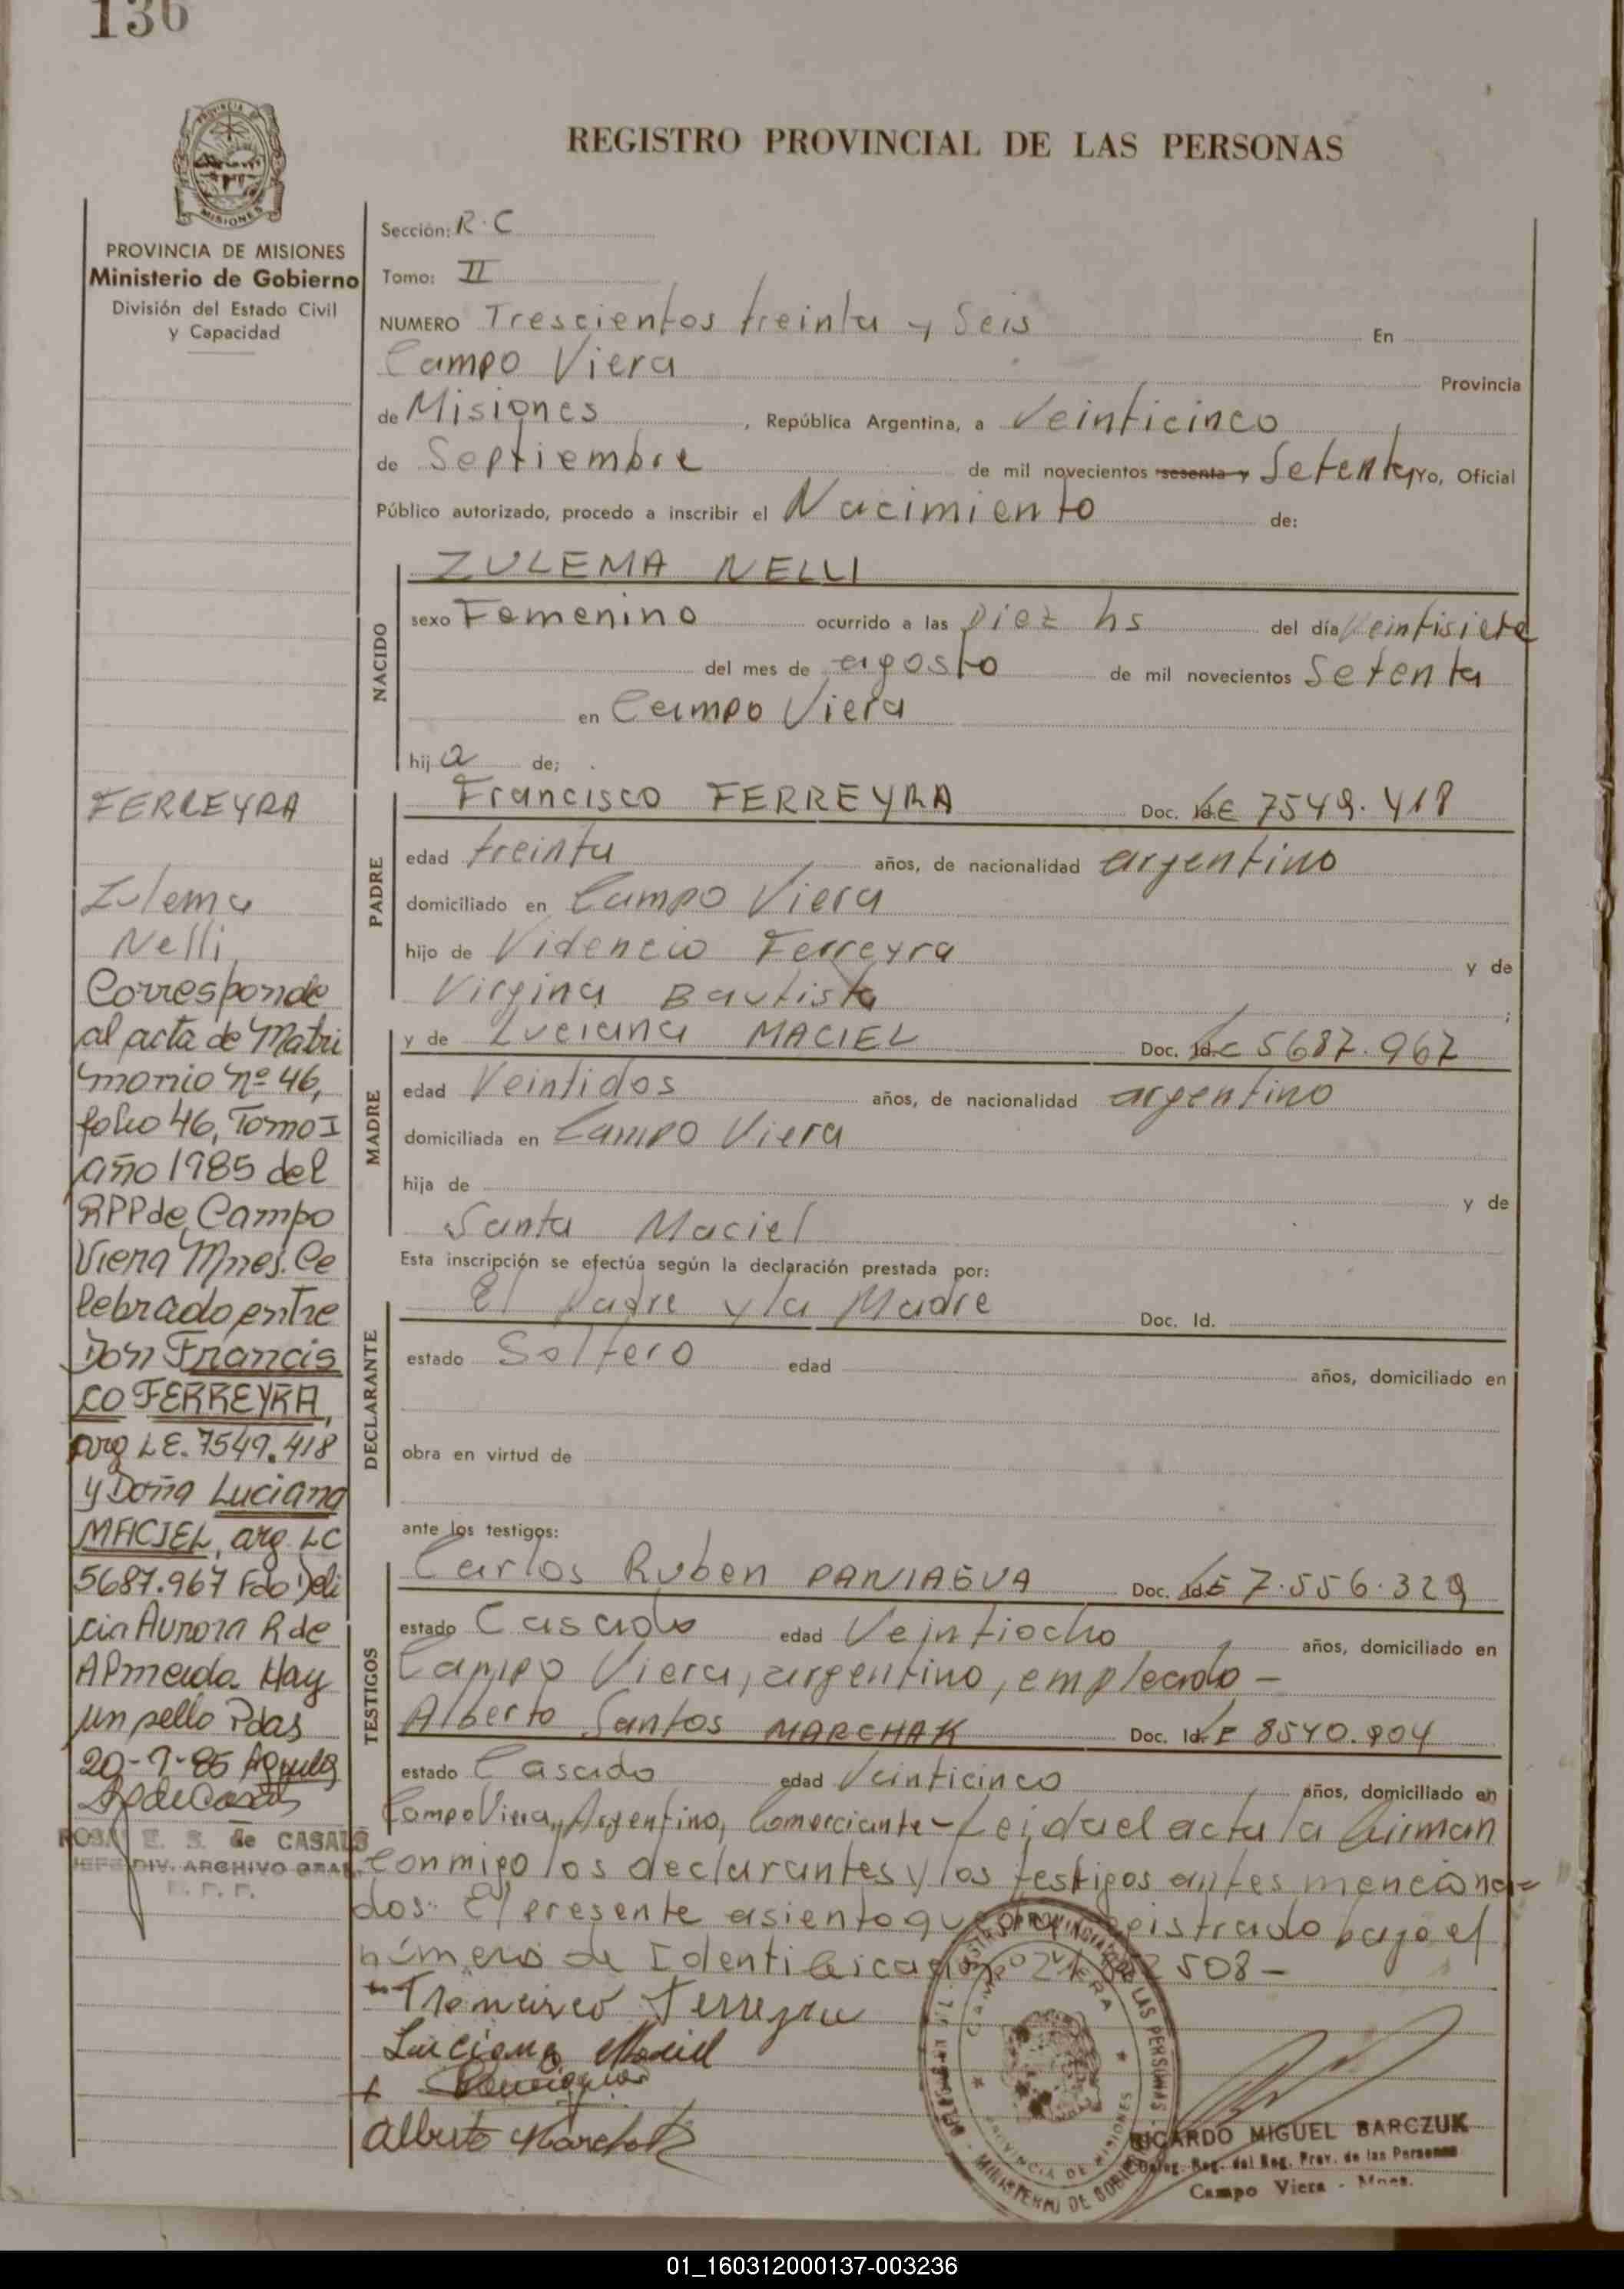 136
REGISTRO PROVINCIAL DE LAS PERSONAS
MISIONES
PROVINCIA DE MISIONES
Ministerio de Gobierno
División del Estado Civil
y Capacidad
Sección: R.C
Tomo: II
NUMERO Trescientos treinta y Seis En
Campo Viera Provincia
de Misiones, República Argentina, a Veinticinco
de Septiembre de mil novecientos sesenta y Setenta, Yo, Oficial
Público autorizado, procedo a inscribir el Nacimiento de:
NACIDO
ZULEMA NELLI
sexo Femenino ocurrido a las Diez hs del día Veintisiete
del mes de agosto de mil novecientos Setenta
en Campo Viera
hij a de;
PADRE
Francisco FERREYRA Doc. Id. LE 7549.418
edad treinta años, de nacionalidad argentino
domiciliado en Campo Viera
hijo de Videncio Ferreyra y de
Virgina Bautista ;
MADRE
y de Luciana MACIEL Doc. Id. LC 5687.967
edad Veintidos años, de nacionalidad argentino
domiciliada en Campo Viera
hija de y de
Santa Maciel
Esta inscripción se efectúa según la declaración prestada por:
DECLARANTE
El Padre y la Madre Doc. Id.
estado Soltero edad años, domiciliado en
obra en virtud de
ante los testigos:
TESTIGOS
Carlos Ruben PANIAGUA Doc. Id. LE 7.556.329
estado Casado edad Veintiocho años, domiciliado en
Campo Viera, argentino, empleado -
Alberto Santos MARCHAK Doc. Id. LE 8540.904
estado Casado edad Veinticinco años, domiciliado en
Campo Viera, Argentino, Comerciante - Leida el acta la firman
conmigo los declarantes y los testigos antes menciona=
dos. El presente asiento registrado bajo el
número de Identificación 508 -
Francisco Ferreyra
Luciana Maciel
Alberto Marchak
FERREYRA
Zulema
Nelli
Corresponde
al acta de Matri
monio nº 46,
folio 46, Tomo I
año 1985 del
RPP de Campo
Viera Mnes. Ce
lebrado entre
Don Francis
co FERREYRA,
arg LE. 7549.418
y Doña Luciana
MACIEL, arg. LC
5687.967 Fdo Deli
cia Aurora R de
Almeida Hay
un sello Pdas
20-9-85
ROSA E. S. de CASALS
JEFE DIV. ARCHIVO GRAL.
R. P. P.
CAMPO VIERA
PROVINCIA DE MISIONES
MINISTERIO DE GOBIERNO
RICARDO MIGUEL BARCZUK
Deleg. Reg. del Reg. Prov. de las Personas
Campo Viera - Mnes.
01_160312000137-003236